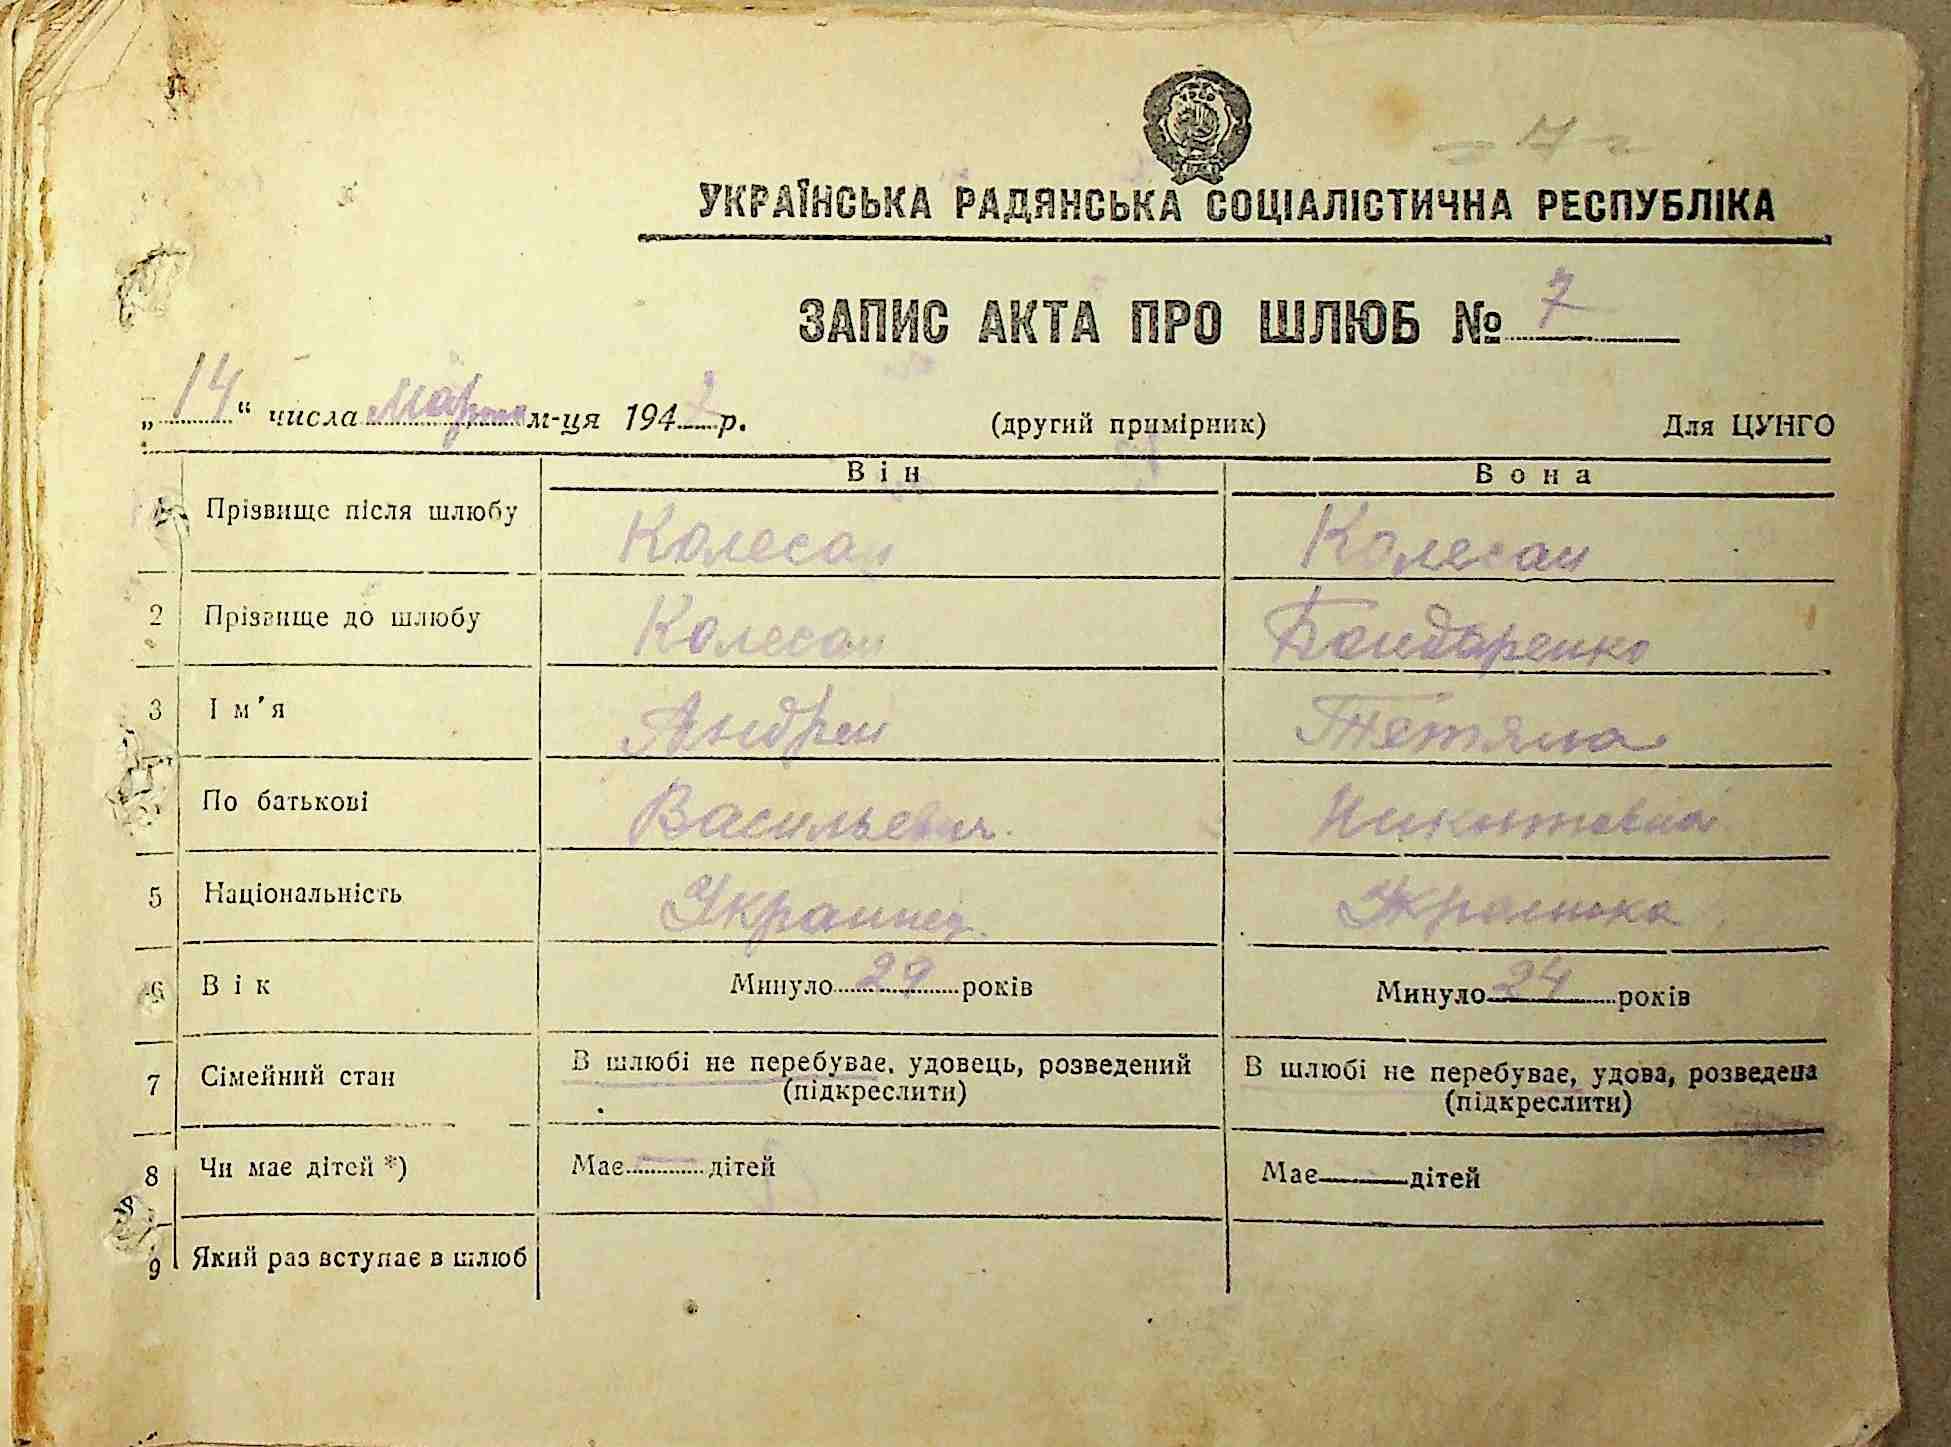 = 7 =
УКРАЇНСЬКА РАДЯНСЬКА СОЦІАЛІСТИЧНА РЕСПУБЛІКА
ЗАПИС АКТА ПРО ШЛЮБ № 7
„14“ числа марта м-ця 1942 р. (другий примірник) Для ЦУНГО
Він Вона
1 Прізвище після шлюбу Колесан Колесан
2 Прізвище до шлюбу Колесан Бондаренко
3 Ім'я Андреи Тетяна
По батькові Васильевич. Никитовна
5 Національність Украинец. Украинка
6 Вік Минуло 29 років Минуло 24 років
7 Сімейний стан В шлюбі не перебуває, удовець, розведений (підкреслити) В шлюбі не перебуває, удова, розведена (підкреслити)
8 Чи має дітей *) Має — дітей Має — дітей
9 Який раз вступає в шлюб